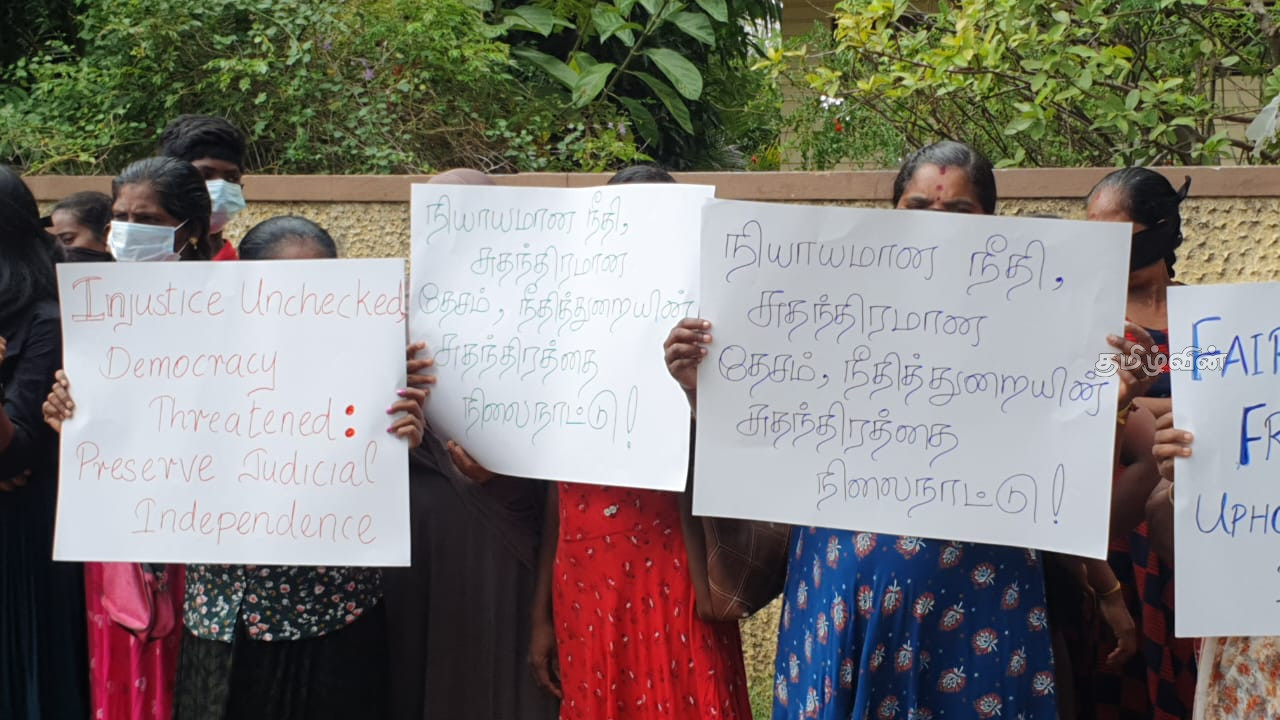 Injustice Unchecked,
Democracy
Threatened:
Preserve Judicial
Independence
நியாயமான நீதி,
சுதந்திரமான
தேசம், நீதித்துறையின்
சுதந்திரத்தை
நிலைநாட்டு!
நியாயமான நீதி,
சுதந்திரமான
தேசம், நீதித்துறையின்
சுதந்திரத்தை
நிலைநாட்டு!
தமிழ்வின்
FAIR
FR
UPHO